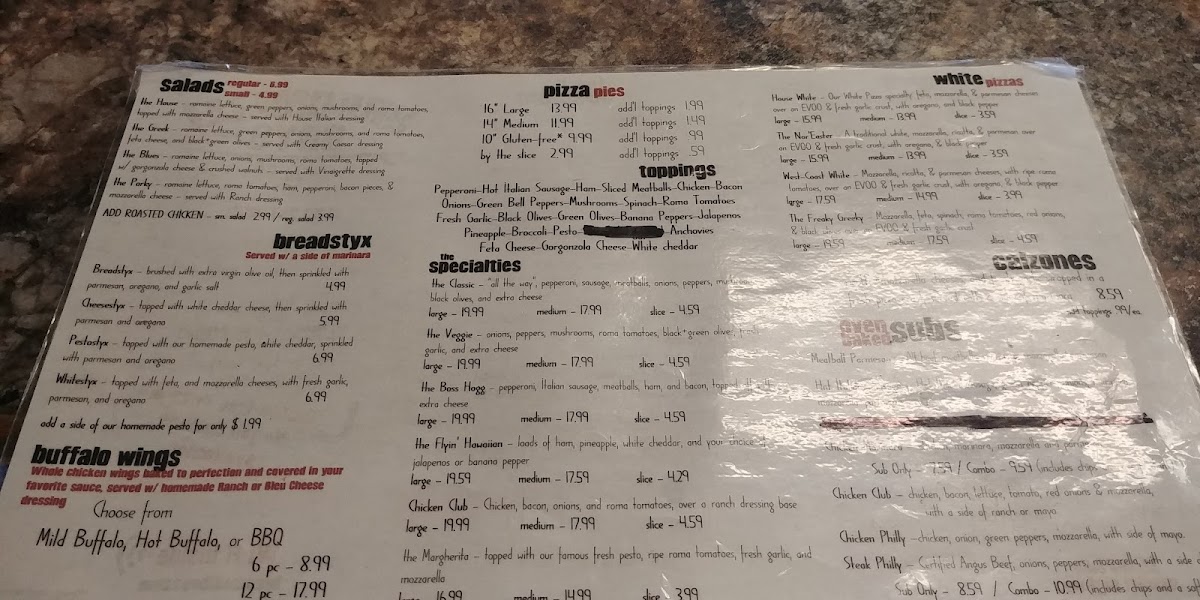 salads regular - 6.99
small - 4.99
the House - romaine lettuce, green peppers, onions, mushrooms, and roma tomatoes,
topped with mozzarella cheese - served with House Italian dressing
the Greek - romaine lettuce, green peppers, onions, mushrooms, and roma tomatoes,
feta cheese, and black+green olives - served with Creamy Caesar dressing
the Blues - romaine lettuce, onions, mushrooms, roma tomatoes, topped
w/ gorgonzola cheese & crushed walnuts - served with Vinaigrette dressing
the Porky - romaine lettuce, roma tomatoes, ham, pepperoni, bacon pieces, &
mozzarella cheese - served with Ranch dressing
ADD ROASTED CHICKEN - sm. salad 2.99 / reg. salad 3.99
breadstyx
Served w/ a side of marinara
Breadstyx - brushed with extra virgin olive oil, then sprinkled with
parmesan, oregano, and garlic salt 4.99
Cheesestyx - topped with white cheddar cheese, then sprinkled with
parmesan and oregano 5.99
Pestostyx - topped with our homemade pesto, white cheddar, sprinkled
with parmesan and oregano 6.99
Whitestyx - topped with feta, and mozzarella cheeses, with fresh garlic,
parmesan, and oregano 6.99
add a side of our homemade pesto for only $ 1.99
buffalo wings
Whole chicken wings baked to perfection and covered in your
favorite sauce, served w/ homemade Ranch or Bleu Cheese
dressing
Choose from
Mild Buffalo, Hot Buffalo, or BBQ
6 pc - 8.99
12 pc - 17.99
pizza pies
16" Large 13.99 add'l toppings 1.99
14" Medium 11.99 add'l toppings 1.49
10" Gluten-free* 9.99 add'l toppings .99
by the slice 2.99 add'l toppings .59
toppings
Pepperoni-Hot Italian Sausage-Ham-Sliced Meatballs-Chicken-Bacon
Onions-Green Bell Peppers-Mushrooms-Spinach-Roma Tomatoes
Fresh Garlic-Black Olives-Green Olives-Banana Peppers-Jalapenos
Pineapple-Broccoli-Pesto- Anchovies
Feta Cheese-Gorgonzola Cheese-White cheddar
the
specialties
the Classic - "all the way", pepperoni, sausage, meatballs, onions, peppers,
black olives, and extra cheese
large - 19.99 medium - 17.99 slice - 4.59
the Veggie - onions, peppers, mushrooms, roma tomatoes, black+green olives, fresh
garlic, and extra cheese
large - 19.99 medium - 17.99 slice - 4.59
the Boss Hogg - pepperoni, Italian sausage, meatballs, ham, and bacon, topped
extra cheese
large - 19.99 medium - 17.99 slice - 4.59
the Flyin' Hawaiian - loads of ham, pineapple, white cheddar, and your choice of
jalapenos or banana pepper
large - 19.59 medium - 17.59 slice - 4.29
Chicken Club - Chicken, bacon, onions, and roma tomatoes, over a ranch dressing base
large - 19.99 medium - 17.99 slice - 4.59
the Margherita - topped with our famous fresh pesto, ripe roma tomatoes, fresh garlic, and
mozzarella
large - 16.99 medium - 14.99 slice - 3.99
white pizzas
House White - Our White Pizza specialty, feta, mozzarella, & parmesan cheeses
over an EVOO & fresh garlic crust, with oregano, and black pepper
large - 15.99 medium - 13.99 slice - 3.59
The Nor'Easter - A traditional white, mozzarella, ricotta, & parmesan over
an EVOO & fresh garlic crust, with oregano, & black pepper
large - 15.99 medium - 13.99 slice - 3.59
West-Coast White - Mozzarella, ricotta, & parmesan cheeses, with ripe roma
tomatoes, over an EVOO & fresh garlic crust, with oregano, & black pepper
large - 17.59 medium - 14.99 slice - 3.99
The Freaky Greeky - Mozzarella, feta, spinach, roma tomatoes, red onions,
& black olives over an EVOO & fresh garlic crust
large - 19.59 medium - 17.59 slice - 4.59
calzones
wrapped in a
8.59
toppings .99/ea.
oven baked subs
Meatball Parmesan
marinara, mozzarella and
Sub Only - 7.59 / Combo - 9.59 (includes chips
Chicken Club - chicken, bacon, lettuce, tomato, red onions & mozzarella,
with a side of ranch or mayo
Chicken Philly -chicken, onion, green peppers, mozzarella, with side of mayo.
Steak Philly - Certified Angus Beef, onions, peppers, mozzarella, with a side
Sub Only - 8.59 / Combo - 10.99 (includes chips and a